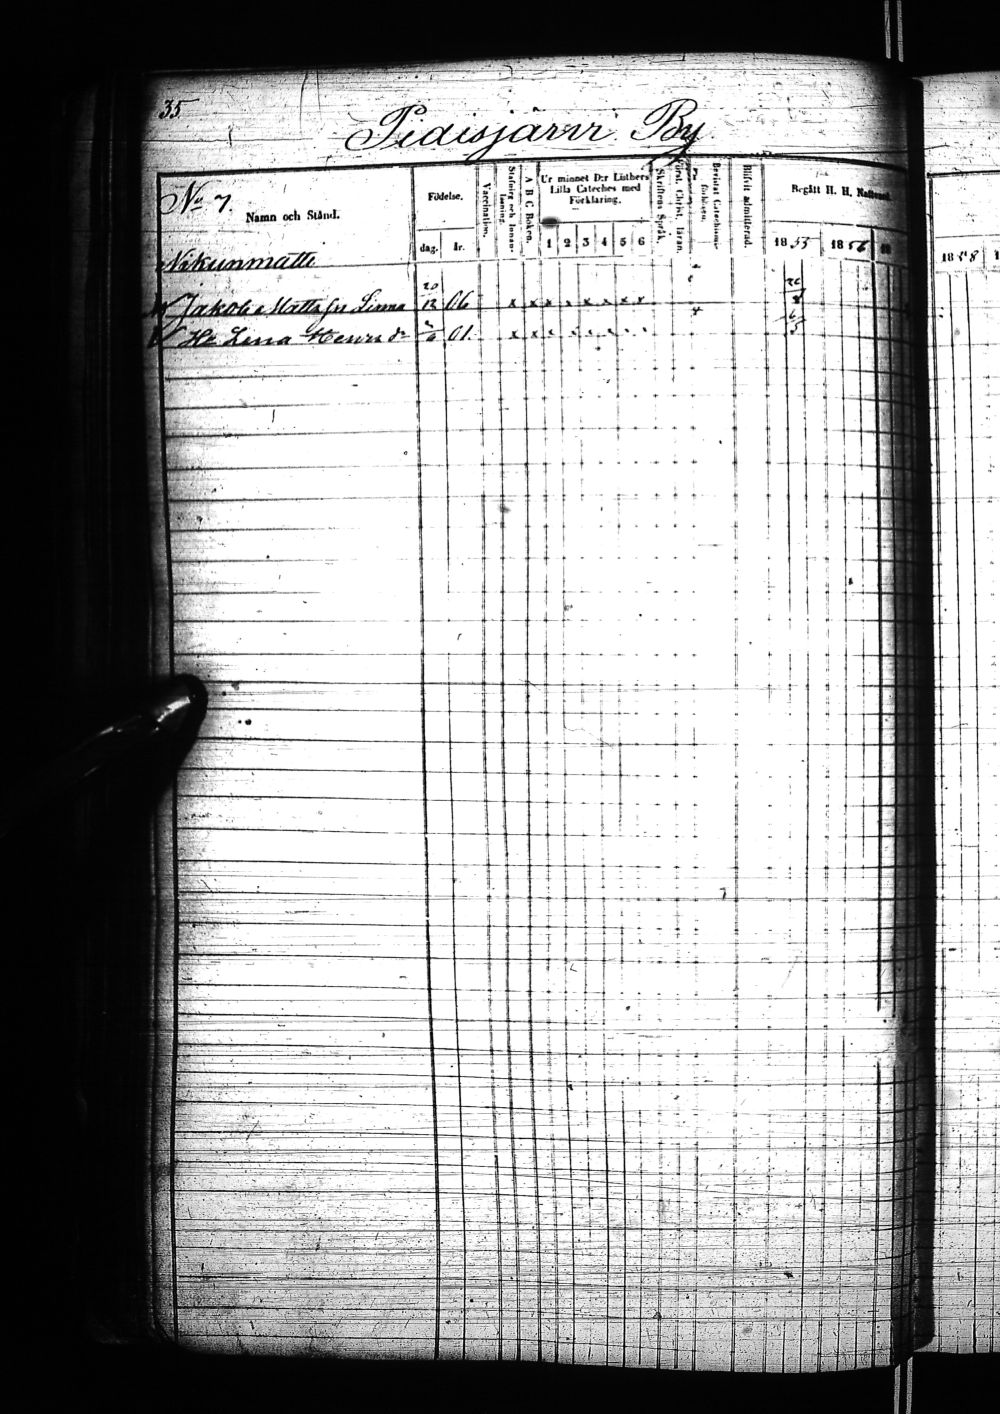 35
Pidisjärvi By
No 7.
Namn och Stånd.
Födelse.
dag. år.
Vaccination.
Stafning och Innanläsning.
A B C Boken.
Ur minnet D:r Luthers Lilla Cateches med Förklaring.
1 2 3 4 5 6
Skriftens Språk.
Christ. läran.
Bevistat Catechismi-förhören.
Blifvit admitterad.
Begått H. H. Nattvard
1855 1856 18
1858 1
Nikunmatti
Jakob Matts 20/12 06 x x x x x x x x
Hu Lena Henrs dr 01. x x x x x